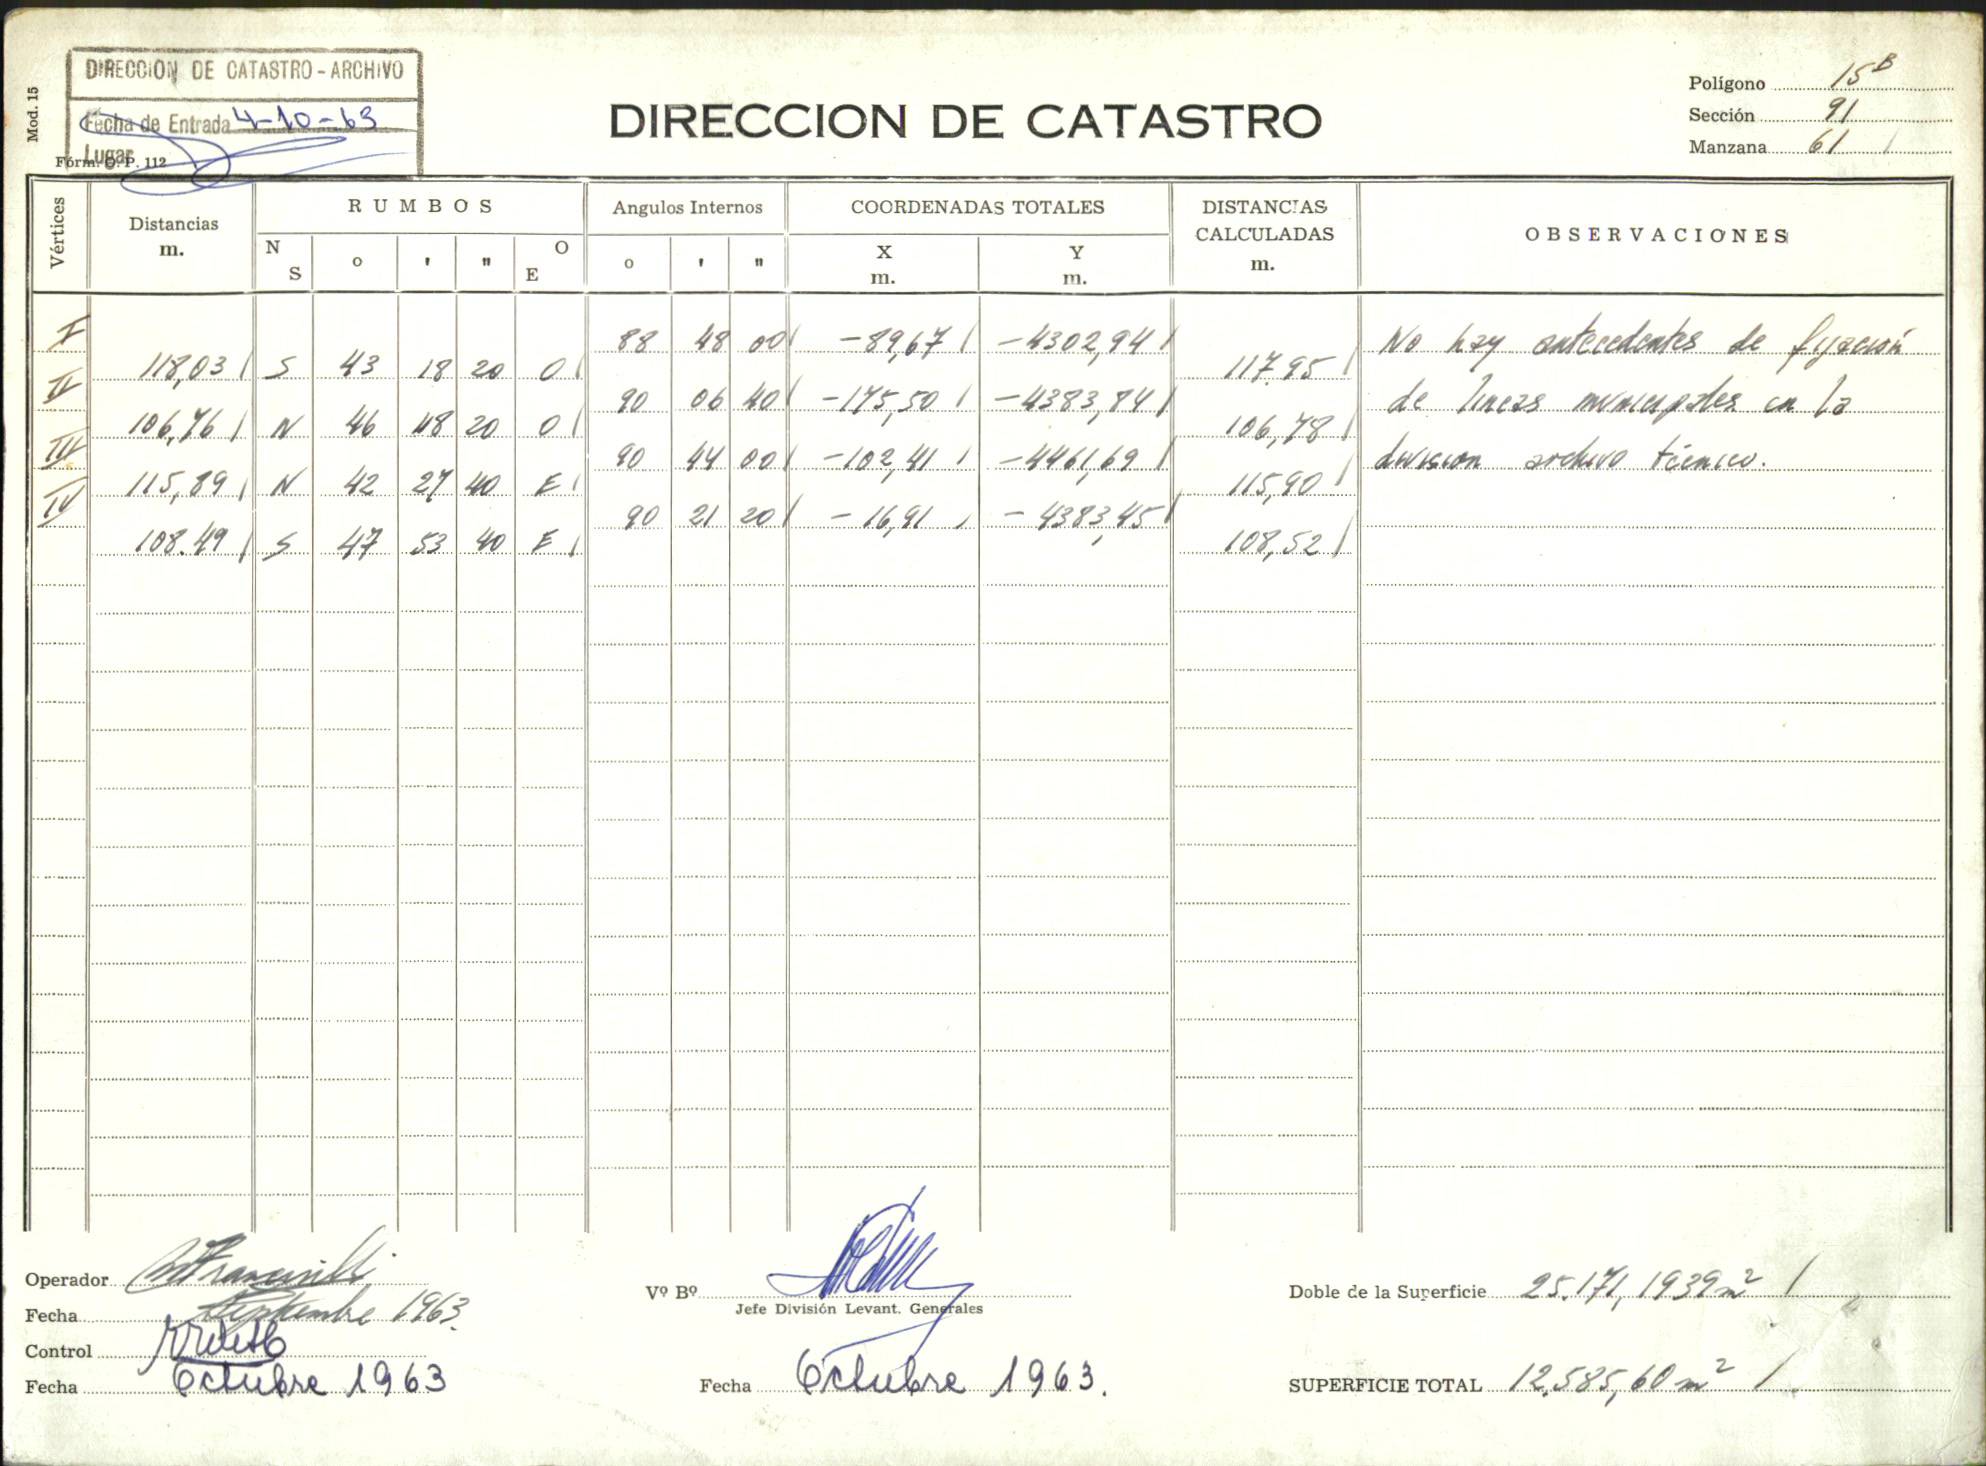 Mod. 15
DIRECCION DE CATASTRO - ARCHIVO
Fecha de Entrada 4-10-63
Lugar
Fórm. O. P. 112
DIRECCION DE CATASTRO
Polígono 15B
Sección 91
Manzana 61
Vértices
Distancias
m.
RUMBOS
N S
o ' "
O E
Angulos Internos
o ' "
COORDENADAS TOTALES
X
m.
Y
m.
DISTANCIAS
CALCULADAS
m.
OBSERVACIONES
I 88 48 00 -89,67 -4302,94 No hay antecedentes de fijación
118,03 S 43 18 20 O 117,95
II 90 06 40 -175,50 -4383,84 de lineas municipales en la
106,76 N 46 48 20 O 106,78
III 90 44 00 -102,41 -4461,69 division archivo técnico.
115,89 N 42 27 40 E 115,90
IV 90 21 20 -16,91 -4383,45
108.49 S 47 53 40 E 108,52
Operador
Fecha Septiembre 1963.
Control
Fecha Octubre 1963
Vº Bº
Jefe División Levant. Generales
Fecha Octubre 1963.
Doble de la Superficie 25.171,1939 m²
SUPERFICIE TOTAL 12.585,60 m²